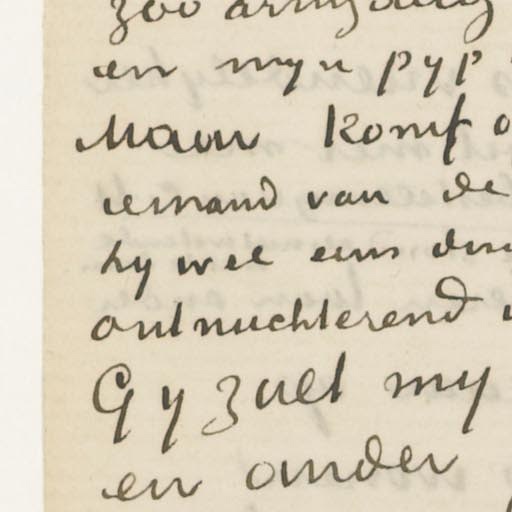 zoo armzalig
en myn pyp
Maar komt
iemand van de
hy wel eens
ontnuchterend
Gy zult my
en ander